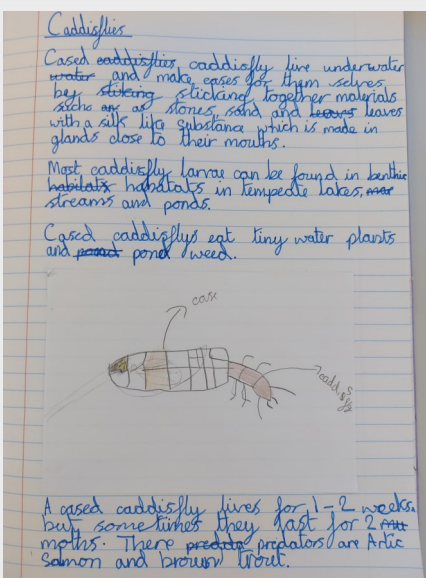 Caddisflies
Cased caddisflies, caddisfly live underwater
water and make cases for them selves
by stiking sticking together materials
suchc an as stones, sand and leavs leaves
with a silk like substance which is made in
glands close to their mouths.
Most caddisfly larvae can be found in benthic
habilats habatats in tempeate lakes, mar
streams and ponds.
Cased caddisflys eat tiny water plants
and pond weed.
case
caddisfly
A cased caddisfly lives for 1-2 weeks.
but sometimes they last for 2
moths. There predita predators are Artic
Salmon and brown trout.